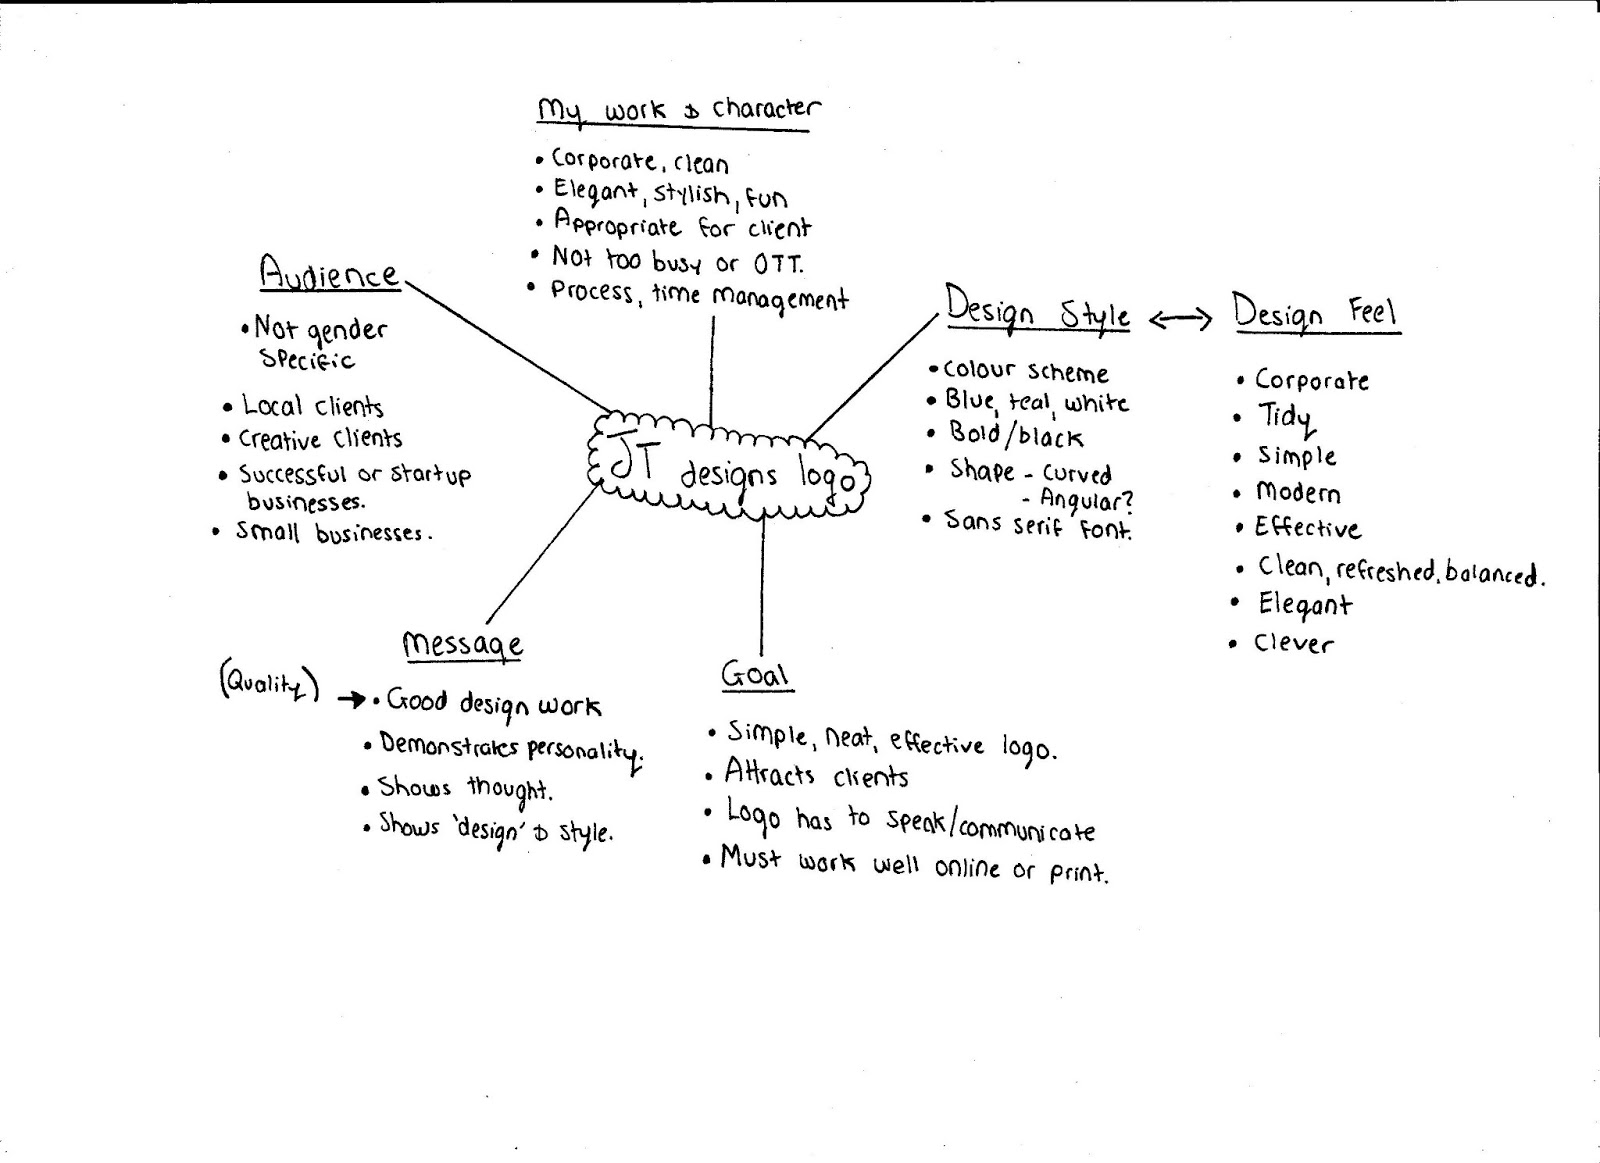 My work & character
• Corporate, clean
• Elegant, stylish, fun
• Appropriate for client
• Not too busy or OTT.
• Process, time management
Audience
• Not gender
specific
• Local clients
• Creative clients
• Successful or startup
businesses.
• Small businesses.
JT designs logo
Design Style ↔ Design Feel
• Colour scheme
• Blue, teal, white
• Bold/black
• Shape - Curved
- Angular?
• Sans serif font.
• Corporate
• Tidy
• Simple
• Modern
• Effective
• Clean, refreshed, balanced.
• Elegant
• Clever
Message
(Quality) → • Good design work
• Demonstrates personality.
• Shows thought.
• Shows 'design' & style.
Goal
• Simple, neat, effective logo.
• Attracts clients
• Logo has to speak/communicate
• Must work well online or print.